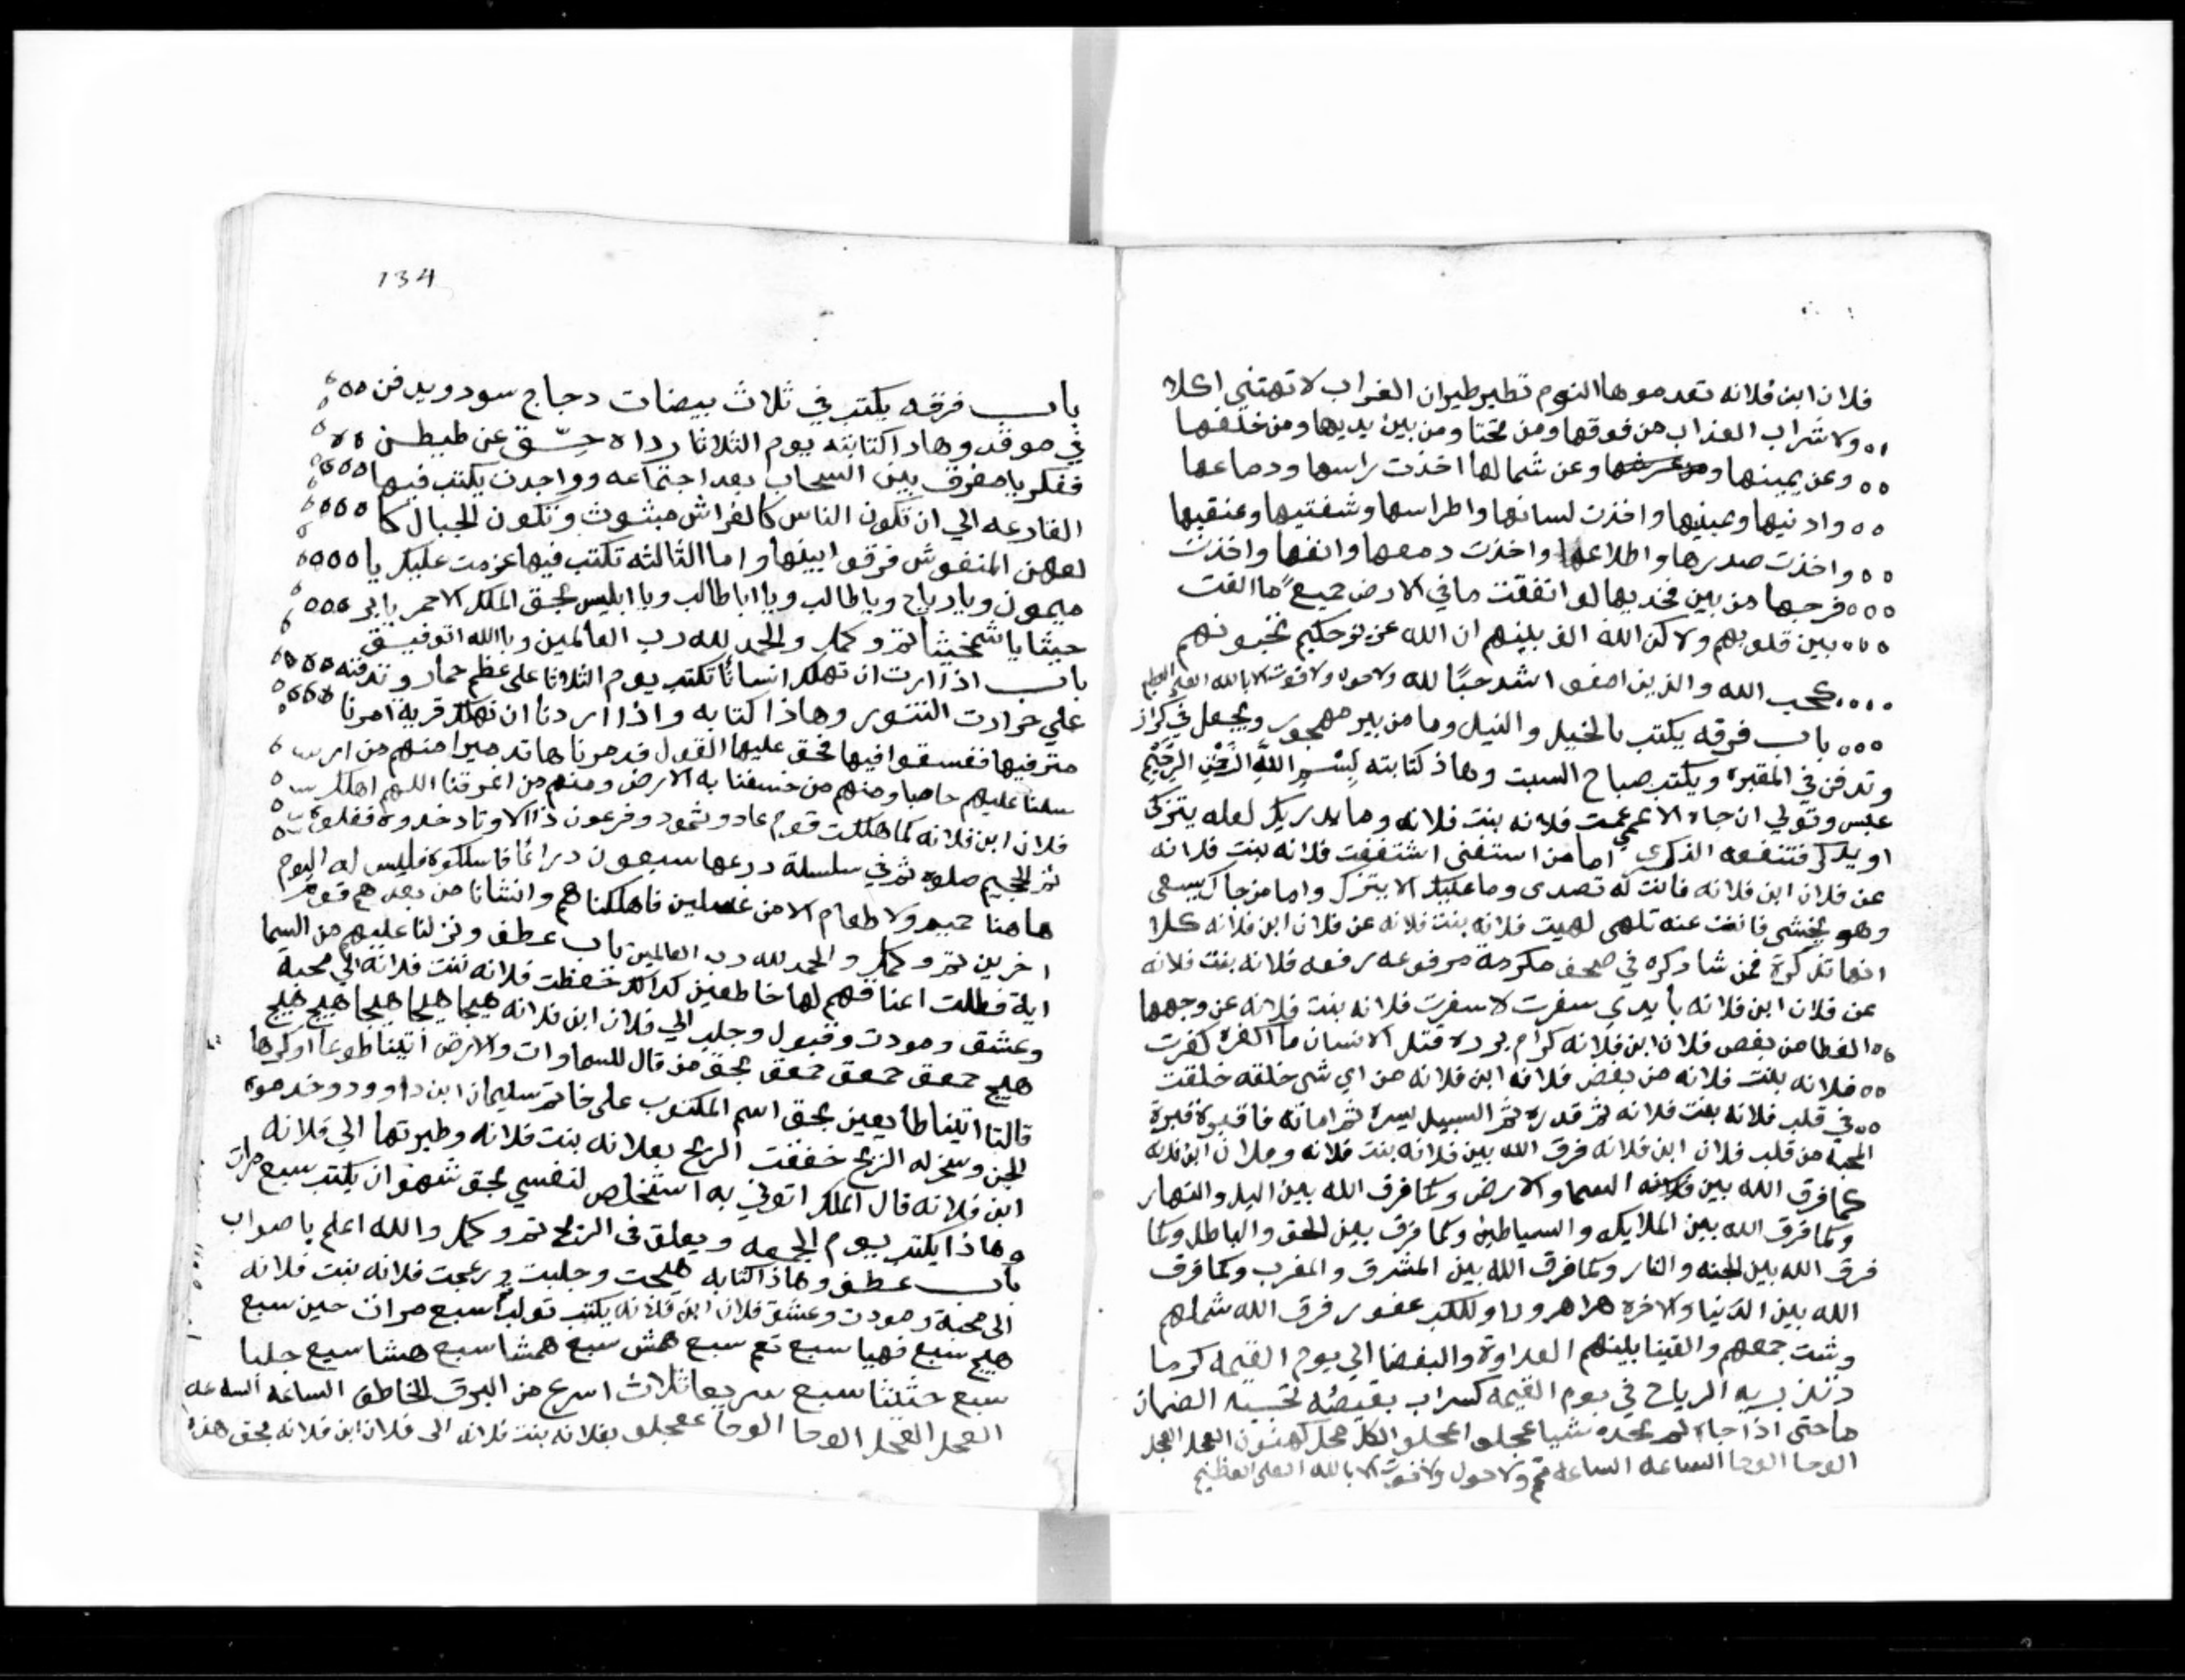 فلان ابن فلانه تعدموها النوم تطير طيران الغراب لا تهتني اكلا
ولا شراب العذاب من فوقها ومن تحتا ومن بين يديها ومن خلفها
وعن يمينها وعن شمالها اخذت راسها ودماعها
وادنيها وعينيها واخذت لسانها واطراسها وشفتيها وعنقيها
واخذت صدرها واطلاعها واخذت دمعها وانفها واخذت
فرجها من بين فخديها لو انفقت ما في الارض جميعًا ما الفت
بين قلوبهم ولاكن الله الف بينهم ان الله عزيز حكيم يحبونهم
كحب الله والذين امنوا اشد حبًا لله ولا حول ولا قوت الا بالله العلي العظيم
باب فرقه يكتب بالخيل والنيل وما من بير مهجور ويجعل في كراز
وتدفن في المقبرة ويكتب صباح السبت وهاذ كتابته بِسْمِ اللَّهِ الرَّحْمَنِ الرَّحِيمِ
عبس وتولي ان جاه الاعمي عمت فلانه بنت فلانه وما يدريك لعله يتزكى
او يذكر فتنفعه الذكرى اما من استغنى اشتغفت فلانه بنت فلانه
عن فلان ابن فلانه فانت له تصدى وما عليك الا يتزك واما من جاك يسعى
وهو يخشى فانت عنه تلهى لهيت فلانه بنت فلانه عن فلان ابن فلانه كلا
انها تذكرة فمن شا دكره في صحف مكرمة مرفوعه رفعه فلانه بنت فلانه
عن فلان ابن فلانه بأيدي سفرت لا سفرت فلانه بنت فلانه عن وجهها
الغطا من بغض فلان ابن فلانه كرام برره قتل الانسان ما اكفره كفرت
فلانه بنت فلانه من بغض فلانه ابن فلانه من اي شي خلقه خلقت
في قلب فلانه بنت فلانه ثم قدره ثم السبيل يسره ثم اماته فاقبره قبرة
المحبة من قلب فلان ابن فلانه فرق الله بين فلانه بنت فلانه وفلان ابن فلانه
كما فرق الله بين السما والارض وكما فرق الله بين اليل والنهار
وكما فرق الله بين الملايكه والسياطين وكما فرق بين الحق والباطل وكما
فرق الله بين الجنه والنار وكما فرق الله بين المشرق والمغرب وكما فرق
الله بين الدنيا والاخره فرق الله شملهم
وشت جمعهم والقينا بينهم العداوة والبغضا الي يوم القيمه كرما
الرياح في يوم القيمه كسراب بقيعته تحسبه الضمان
ما حتى اذا جاه لم يجده شيا عجلو اعجلو العجل العجل
الوحا الوحا الساعه الساعه تم ولا حول ولا قوت الا بالله العلي العظيم
134
باب فرقه يكتب في ثلاث بيضات دجاج سود ويدفن
في موقد وهاد اكتابته يوم الثلاثا عن
يا مفرق بين السحاب بعد اجتماعه وواحدت يكتب فيها
القارعه الي ان تكون الناس كالفراش مبثوث وتكون الجبال كا
لعهن المنفوش فرقوا بينها واما الثالثه تكتب فيها عزمت عليك يا
ميمون ويا رياح ويا طالب ويا اباطالب ويا ابليس بحق الملك الاحمر
تم وكمل والحمد لله رب العالمين وبا الله اتوفيق
باب اذا ارت ان تهلك انسانًا تكتب يوم الثلاثا على عظم حمار وتدفنه
علي حرارت التنور وهاذا كتابه واذا اردنا ان نهلك قرية امرنا
مترفيها ففسقوا فيها فحق عليها القول فدمرناها تدميرا منهم من ارسـ
سلنا عليهم حاصبا ومنهم من خسفنا به الارض ومنهم من اغرقنا اللهم اهلك
فلان ابن فلانه كما هلكت قوم عاد وثمود وفرعون ذا الاوتاد خدوه فغلوه
ثم الجحيم صلوه ثم في سلسلة درعها سبعون دراعًا فاسلكوه فليس له اليوم
هاهنا حميم ولا طعام الا من غسلين فاهلكناهم وانشانا من بعدهم قومًا
اخرين تم وكمل والحمد لله رب العالمين باب عطف ونزلنا عليهم من السما
اية فظلت اعناقهم لها خاضعين كدالك خضعت فلانه بنت فلانه الي محبة
وعشق ومودت وقبول وجلب الي فلان ابن فلانه هيجا هيجا هيجا هيج هيج
هيج حمعق حمعق حمعق بحق من قال للسماوات والارض اتينا طوعا او كرها
قالتا اتينا طايعين بحق اسم المكتوب على خاتم سليمان ابن داوود وخدموه
الجن وسخر له الريح خففت الريح بفلانه بنت فلانه وطيرتها الي فلانه
ابن فلانه قال الملك اتوني به استخلص لنفسي بحق شهوان يكتب سبع مرات
وهاذا يكتب بيوم الجمعه ويعلق في الريح تم وكمل والله اعلم باصواب
باب عطف وهاذا كتابه هيجت وجلبت فلانه بنت فلانه
الى محبة ومودت وعشق فلان ابن فلانه يكتب سبع مرات حين سبع
هيج سبع فهيا سبع تم سبع همش سبع همشا سبع هشا سبع جلبا
سبع سريعا ثلاث اسرع من البرق الخاطف الساعه الساعه
العجل العجل الوحا الوحا عجلو بفلانه بنت فلانه الى فلان ابن فلانه بحق هذه